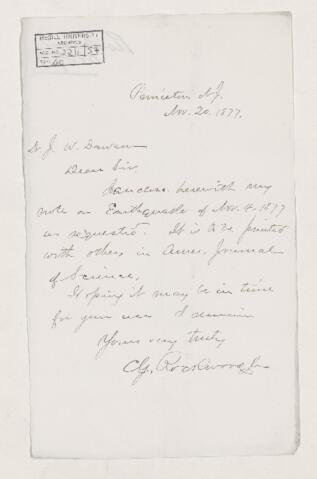 McGILL UNIVERSITY
ARCHIVES
ACC. NO.
REF.
Princeton N.J.
Nov. 20, 1877.
Dr. J. W. Dawson
Dear Sir
I enclose herewith my
note on Earthquake of Nov. 4, 1877
as requested. It is to be printed
with others in Amer. Journal
of Science.
Hoping it may be in time
for your use I remain
Yours very truly
C. G. Rockwood Jr.